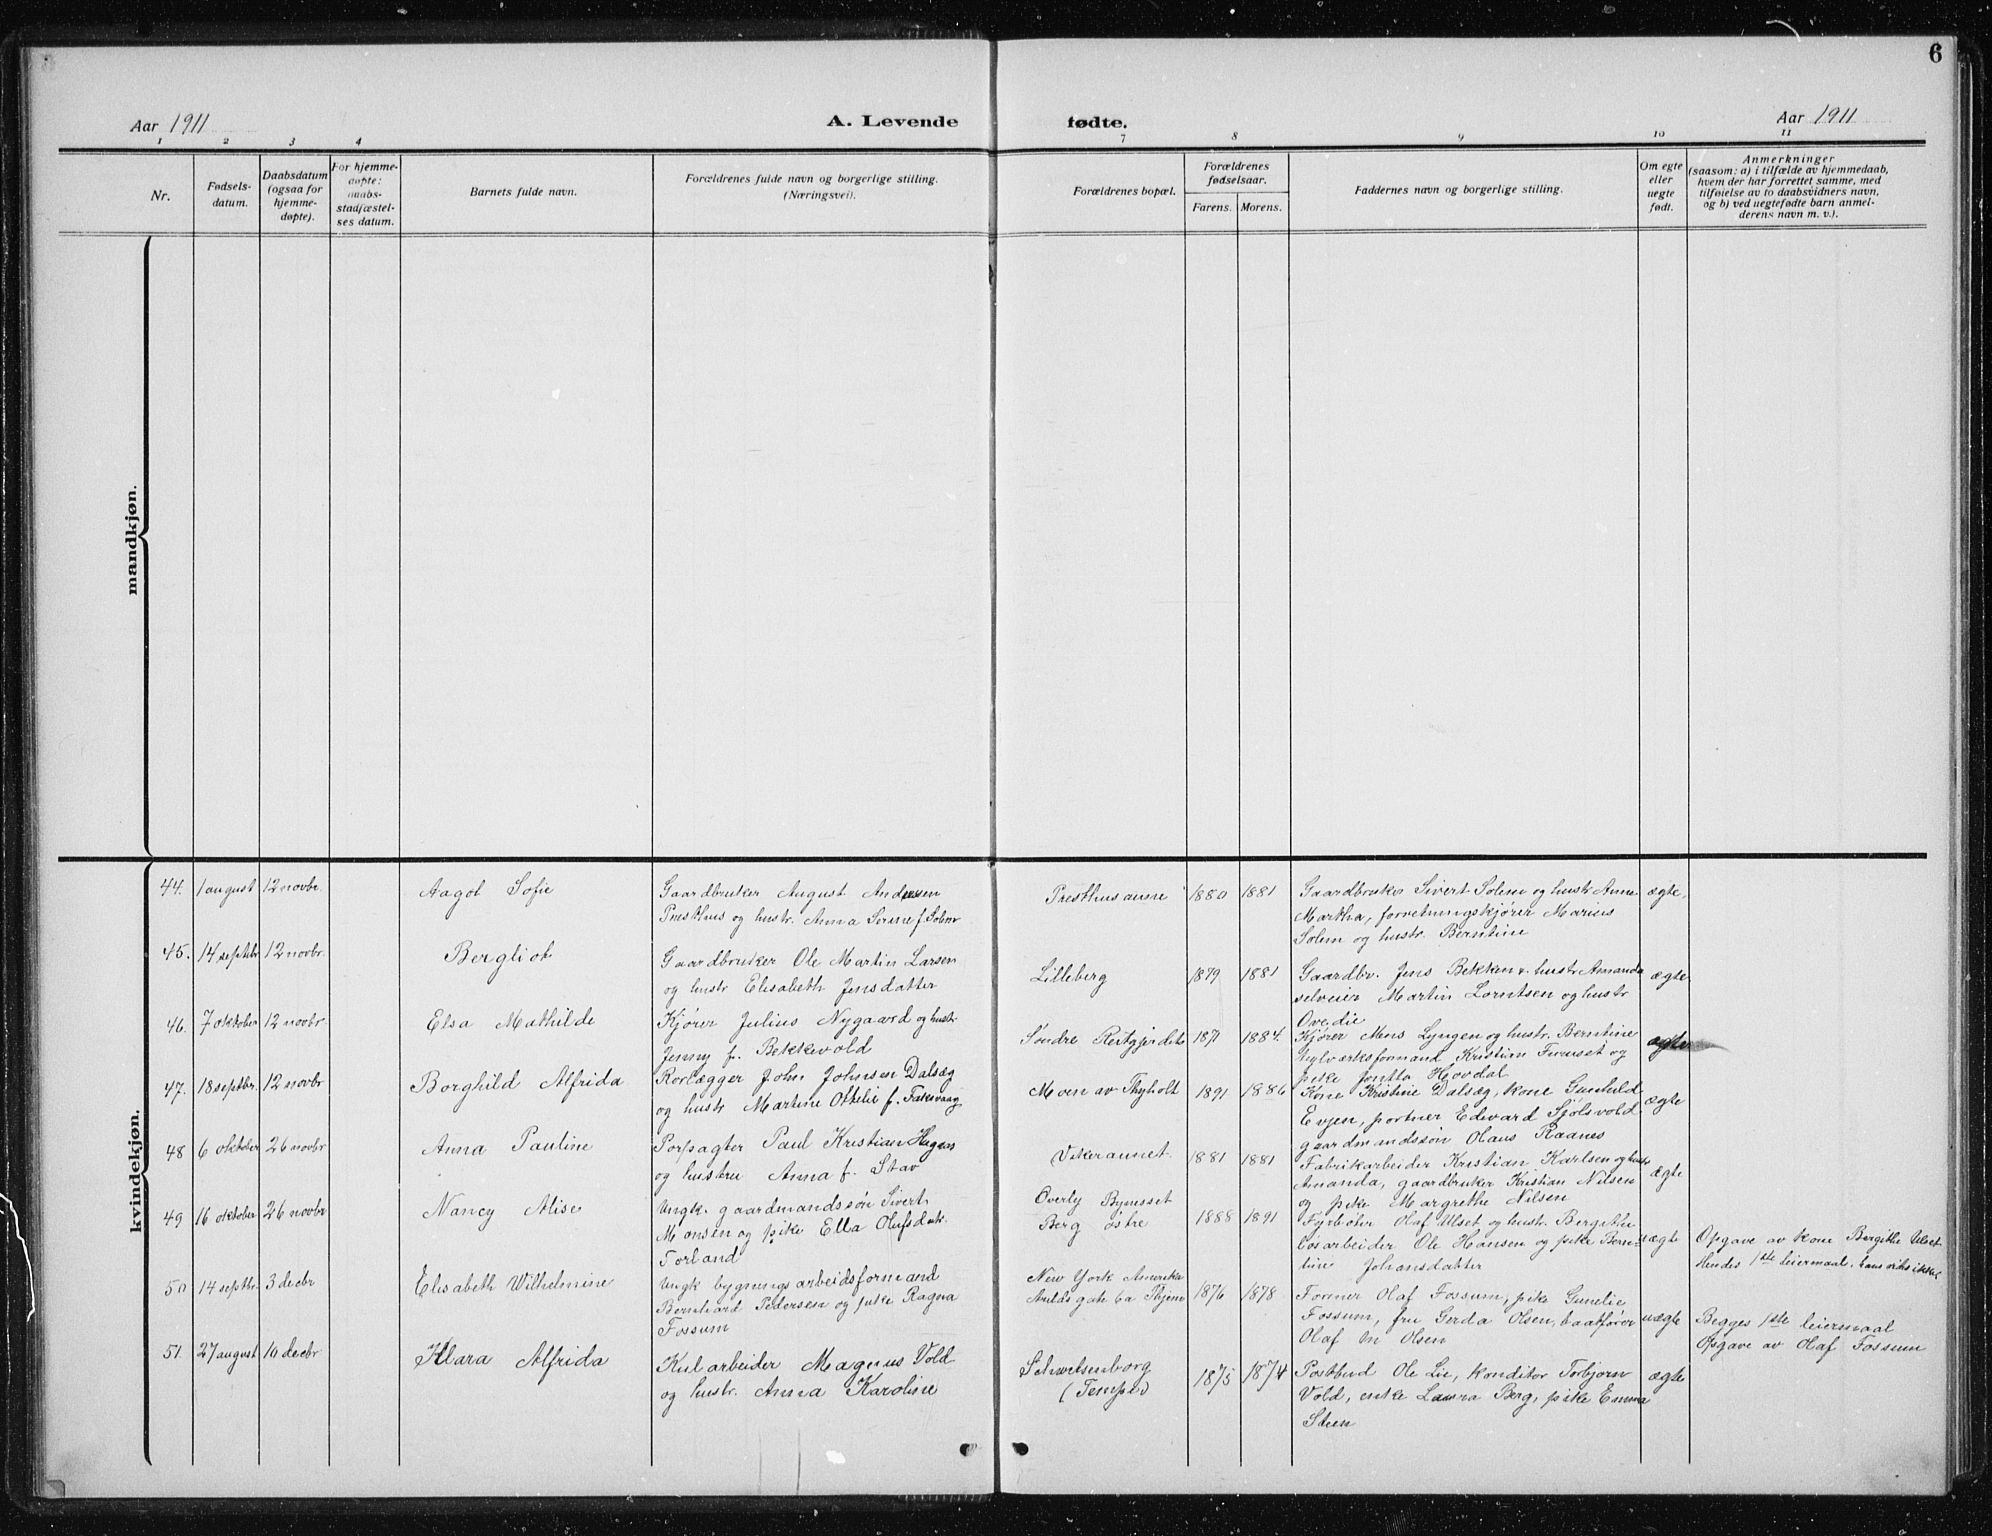 6
Aar 1911
A. Levende
fødte.
Aar 1911
1 2 3 4 7 8 9 10 11
Nr.
Fødsels-
datum.
Daabsdatum
(ogsaa for
hjemme-
døpte).
For hjemme-
døpte:
daabs-
stadfæstel-
ses datum.
Barnets fulde navn.
Forældrenes fulde navn og borgerlige stilling.
(Næringsvei).
Forældrenes bopæl.
Forældrenes
fødselsaar.
Farens. Morens.
Faddernes navn og borgerlige stilling.
Om egte
eller
uegte
født.
Anmerkninger
(saasom: a) i tilfælde av hjemmedaab,
hvem der har forrettet samme, med
tilføielse av to daabsvidners navn,
og b) ved uegtefødte barn anmel-
derens navn m. v.).
mandkjøn.
kvindekjøn.
44. 1 august 12 novbr. Aagot Sofie
Gaardbruker August Andersen
Presthus og hustr. Anna Serine f. Solem
Presthusaune 1880 1881
Gaardbruker Sivert Solem og hustr Anne
Martha, forretningskjører Marius
Solem og hustr. Berntine
ægte.
45. 14 septbr 12 novbr. Bergliot
Gaardbruker Ole Martin Larsen
og hustr Elisabeth Jensdatter
Lilleberg 1879 1881
Gaardbr. Jens Bekken & hustr Amanda
selveier Martin Lorntsen og hustr
Ovedie
ægte
46. 7 oktober 12 novbr. Elsa Mathilde
Kjører Julius Nygaard og hustr.
Jenny f. Bekkevold
Søndre 1871 1884.
Kjører Mens Lyngen og hustr. Berntine
Kristian Furuset og
pike Jontta Hovdal
ægte
47. 18 septbr. 12 novbr Borghild Alfrida
Rorlægger John Johnsen Dalsæg
og hustr Martine Ottilie f. Faksvaag
Moen av Thyholt 1891 1886
Kone Kristine Dalsæg, kone Gunhild
Evjen, portner Edvard Sjølsvold
gaardmandssøn Olaus Raanes
ægte
48 6 oktober 26 novbr Anna Pauline
Forpagter Paul Kristian
og hustru Anna f. Stav
Vikeraunet. 1881 1881
Fabrikarbeider Kristian Karlsen og hustr
Amanda, gaardbruker Kristian Nilsen
og pike Margrethe Nilsen
ægte
49 16 oktober 26 novbr Nancy Alise
Ungk. gaardmandssøn Sivert
Monsen og pike Ella Olufsdatr.
Forland
Overly Bynesset
Berg østre
1888 1891
Fyrbøter Olaf Ulset og hustr. Bergitte
løsarbeider Ole Hansen og pike Bern-
tine Johansdatter
uægte
Opgave av kone Bergithe Ulset
Hendes 1ste leiermaal, hans vites ikke
50 14 septbr. 3 decbr Elisabeth Wilhelmine
Ungk bygningsarbeidsformand
Bernhard Pedersen og pike Ragna
Fossum
New York Amerika
gate 6a Thjem
1876 1878
Former Olaf Fossum, pike Gunelie
Fossum, fru Gerda Olsen, baatfører
Olaf M Olsen
uægte
Begges 1ste leiermaal
Opgave av Olaf Fossum
51. 27 august 10 decbr Klara Alfrida
Kularbeider Magnus Vold
og hustr. Anna Karoline
Schwetsenborg
(Tempe)
1875 1874
Postbud Ole Lie, konditor Torbjørn
Vold, enke Laura Berg, pike Emma
Steen
ægte